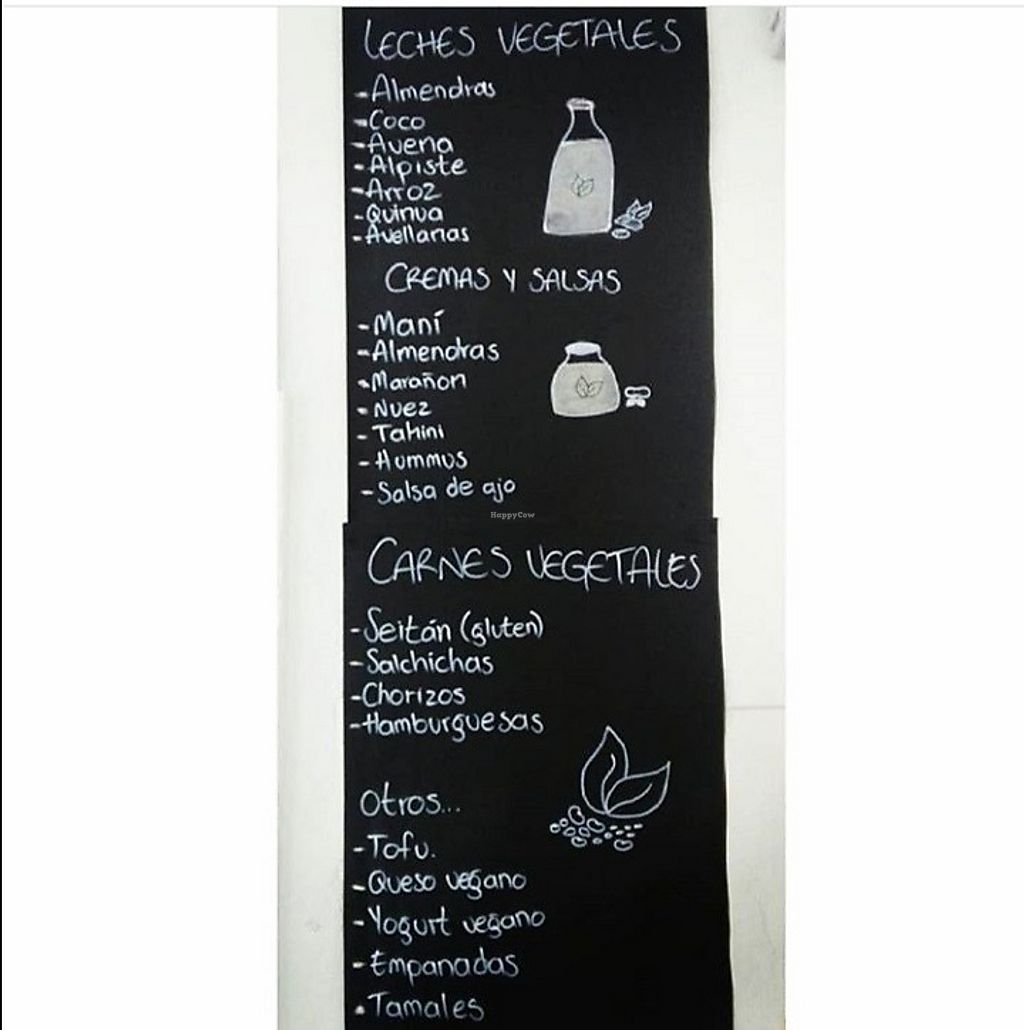 LECHES VEGETALES
-Almendras
-Coco
-Avena
-Alpiste
-Arroz
-Quinua
-Avellanas
CREMAS Y SALSAS
-Maní
-Almendras
-Marañon
-Nuez
-Tahini
-Hummus
-Salsa de ajo
HappyCow
CARNES VEGETALES
-Seitán (gluten)
-Salchichas
-Chorizos
-Hamburguesas
otros...
-Tofu.
-Queso vegano
-Yogurt vegano
-Empanadas
-Tamales